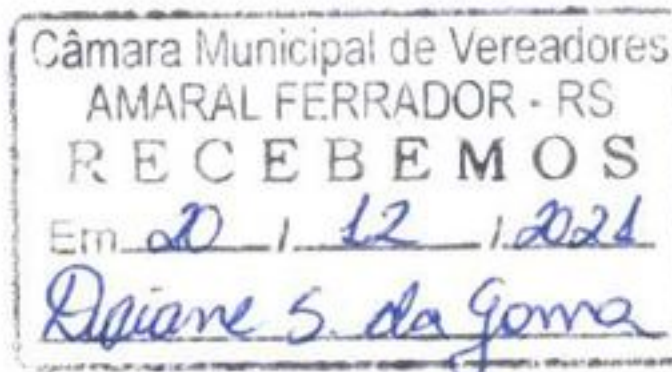 Câmara Municipal de Vereadores
AMARAL FERRADOR - RS
RECEBEMOS
Em 20 / 12 / 2021
Daiane S. da Gama